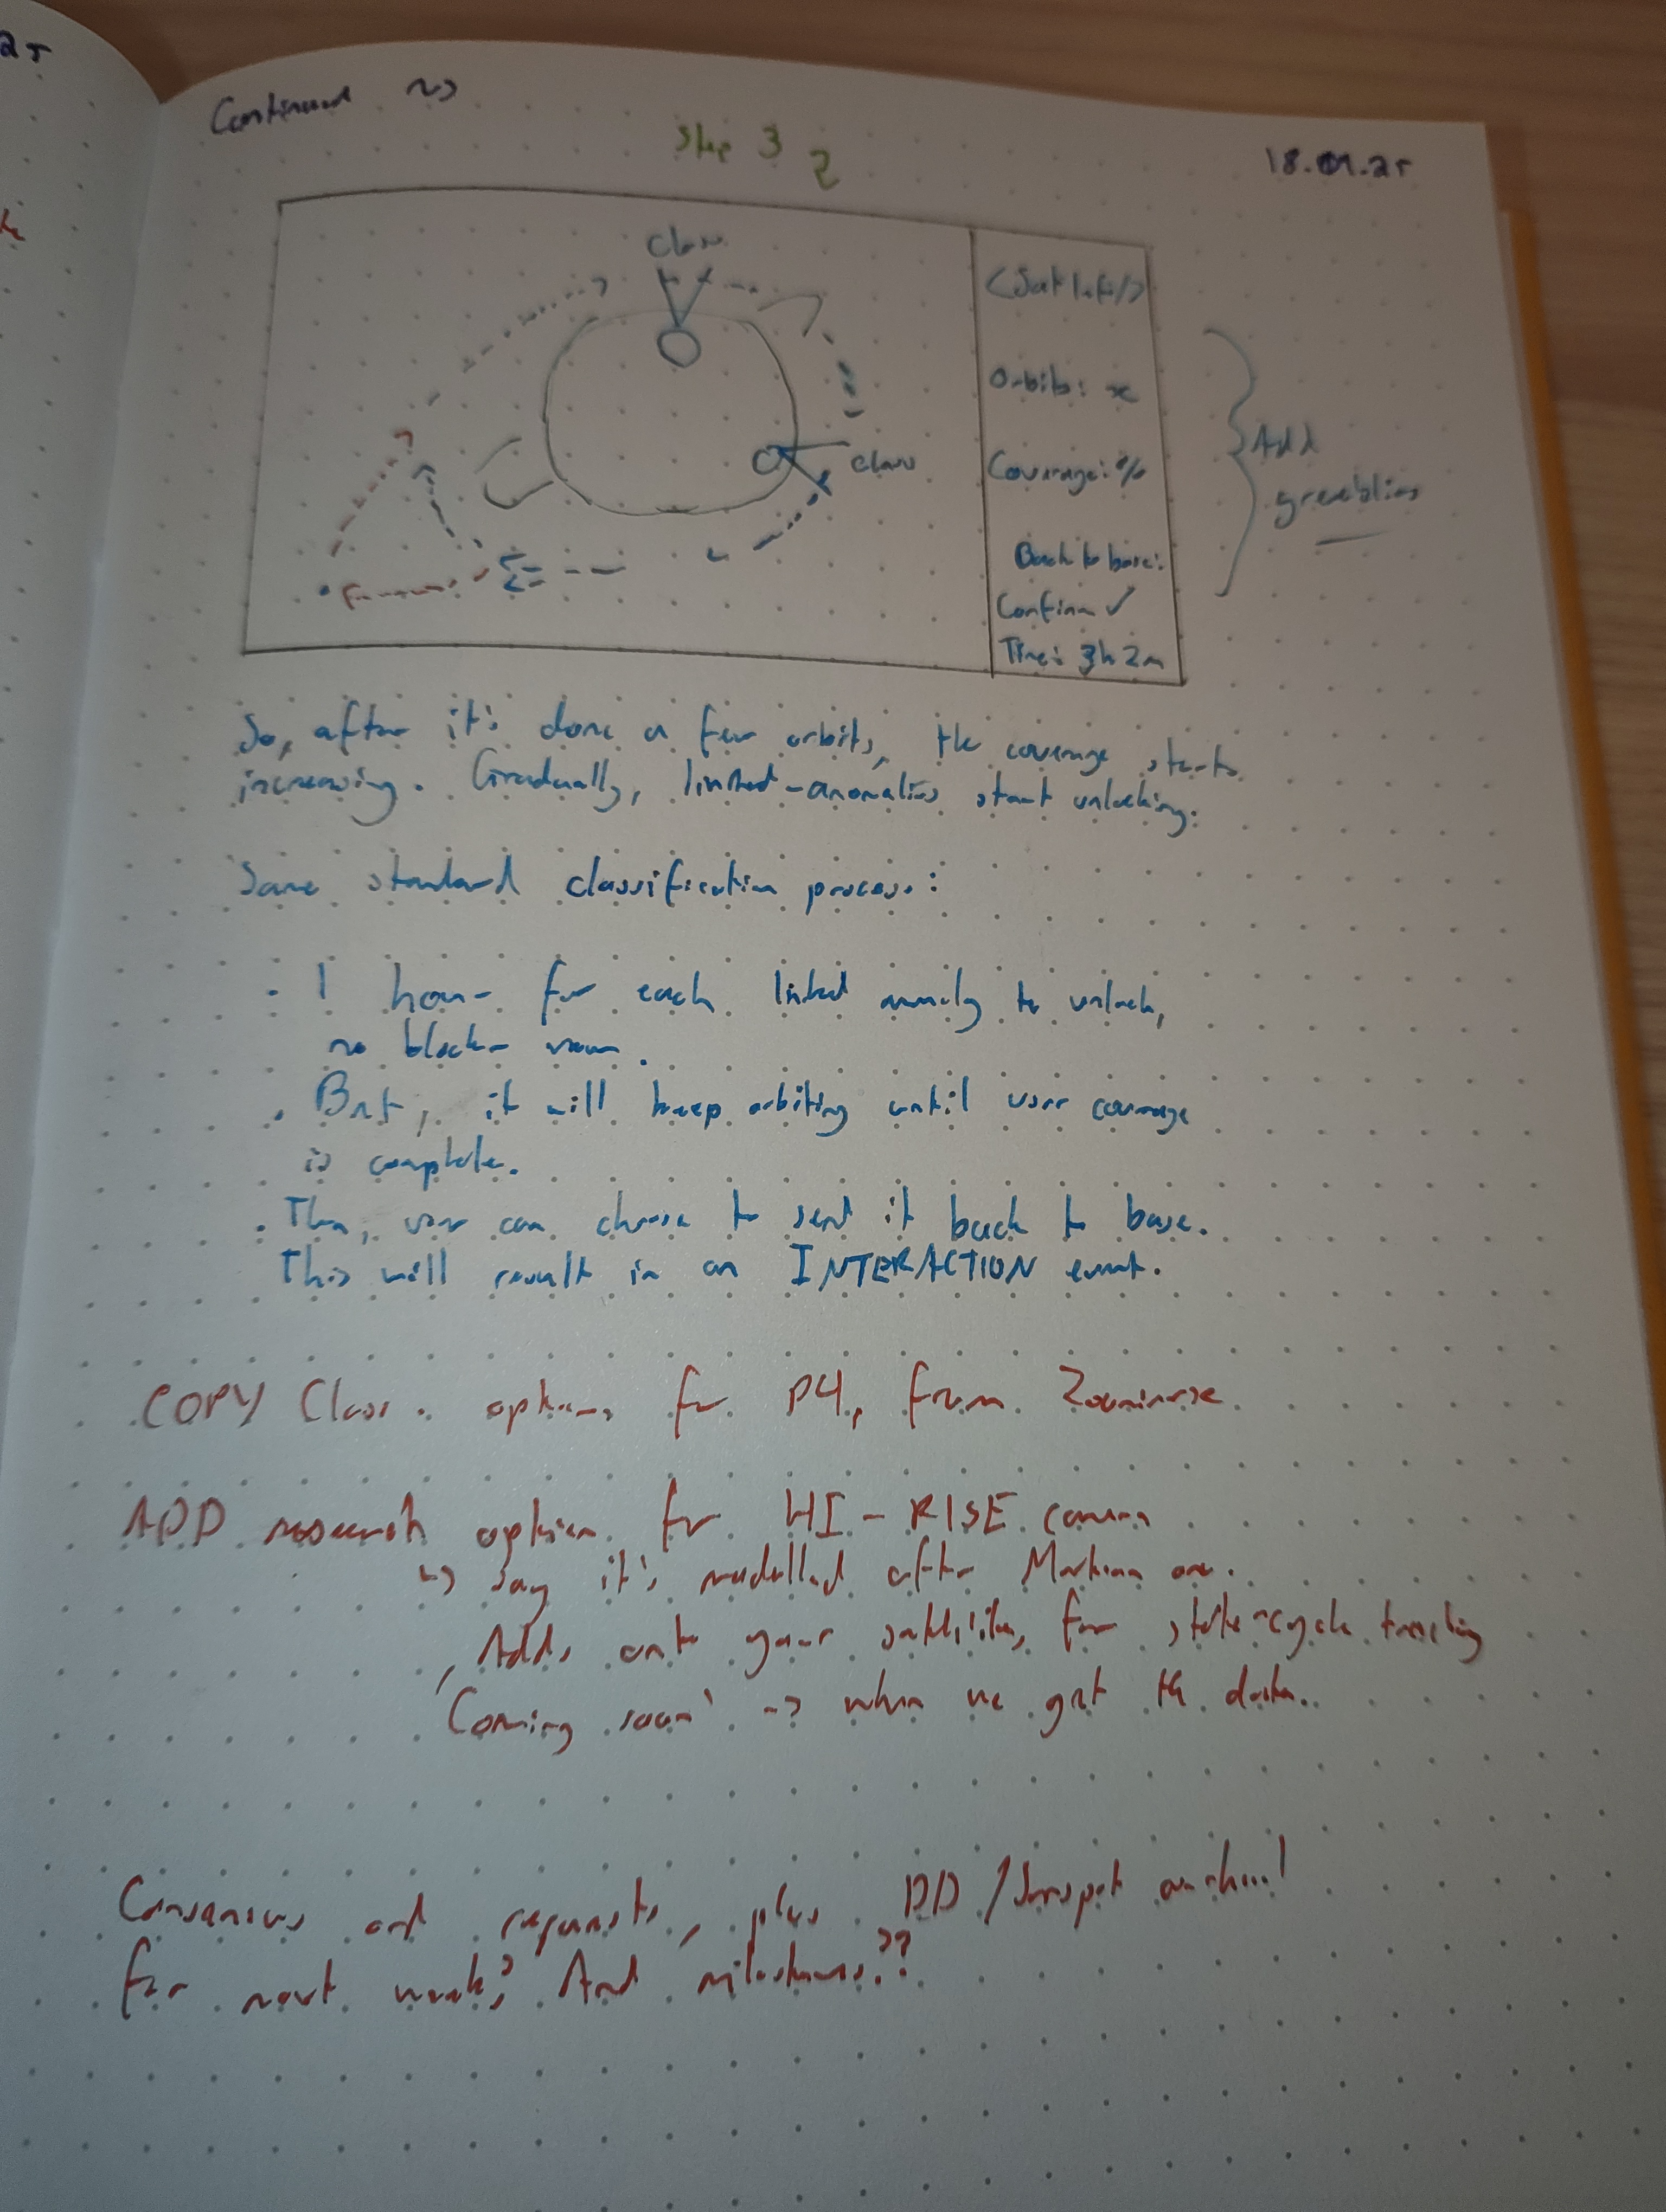 25
Continued ~>
Step 3 2
18.01.25
Class
<Satlift/>
Orbits: x
Class
Coverage: %
Add
greeblies
Back to base:
Confirm ✓
Time: 3h 2m
So, after it's done a few orbits, the coverage starts
increasing. Gradually, linked-anomalies start unlocking.
Same standard classification process:
- 1 hour for each linked anomaly to unlock,
no blocker
. But, it will keep orbiting until user coverage
is complete.
. Then, user can choose to send it back to base.
This will result in an INTERACTION event.
COPY Class. options for P4, from Zooniverse
ADD research option for HI-RISE camera
-> Say it's modelled after Martian one.
Adds onto your satellites, for cycle tracking
'Coming soon' -> when we get the data.
Consensus and requests, plus DD/Sunspot
for next week? And milestones??